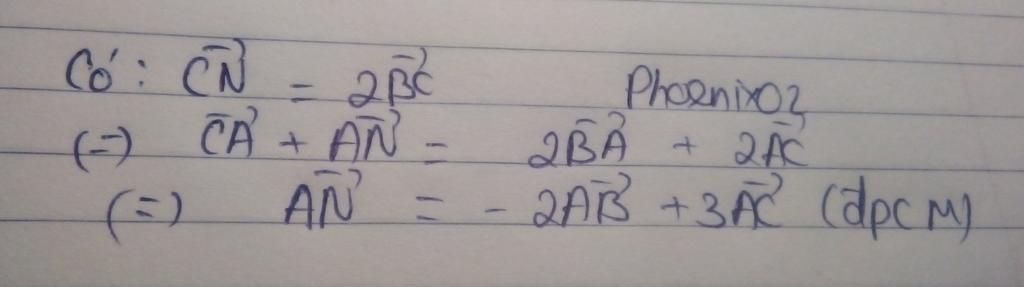 Có: CN⃗ = 2BC⃗ Phoenix02
(=) CA⃗ + AN⃗ = 2BA⃗ + 2AC⃗
(=) AN⃗ = - 2AB⃗ + 3AC⃗ (đpcM)